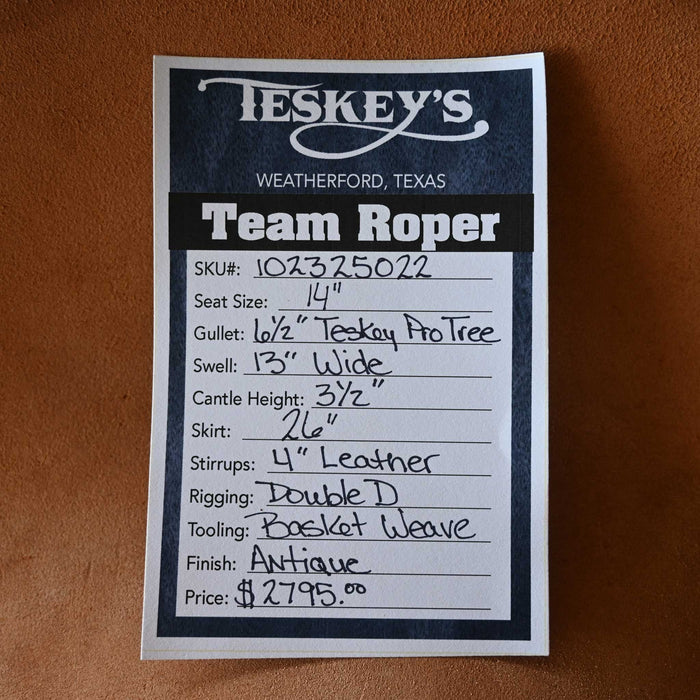 TESKEY'S
WEATHERFORD, TEXAS
Team Roper
SKU#: 102325022
Seat Size: 14"
Gullet: 6½" Teskey Pro Tree
Swell: 13" Wide
Cantle Height: 3½"
Skirt: 26"
Stirrups: 4" Leather
Rigging: Double D
Tooling: Basket Weave
Finish: Antique
Price: $2795.00